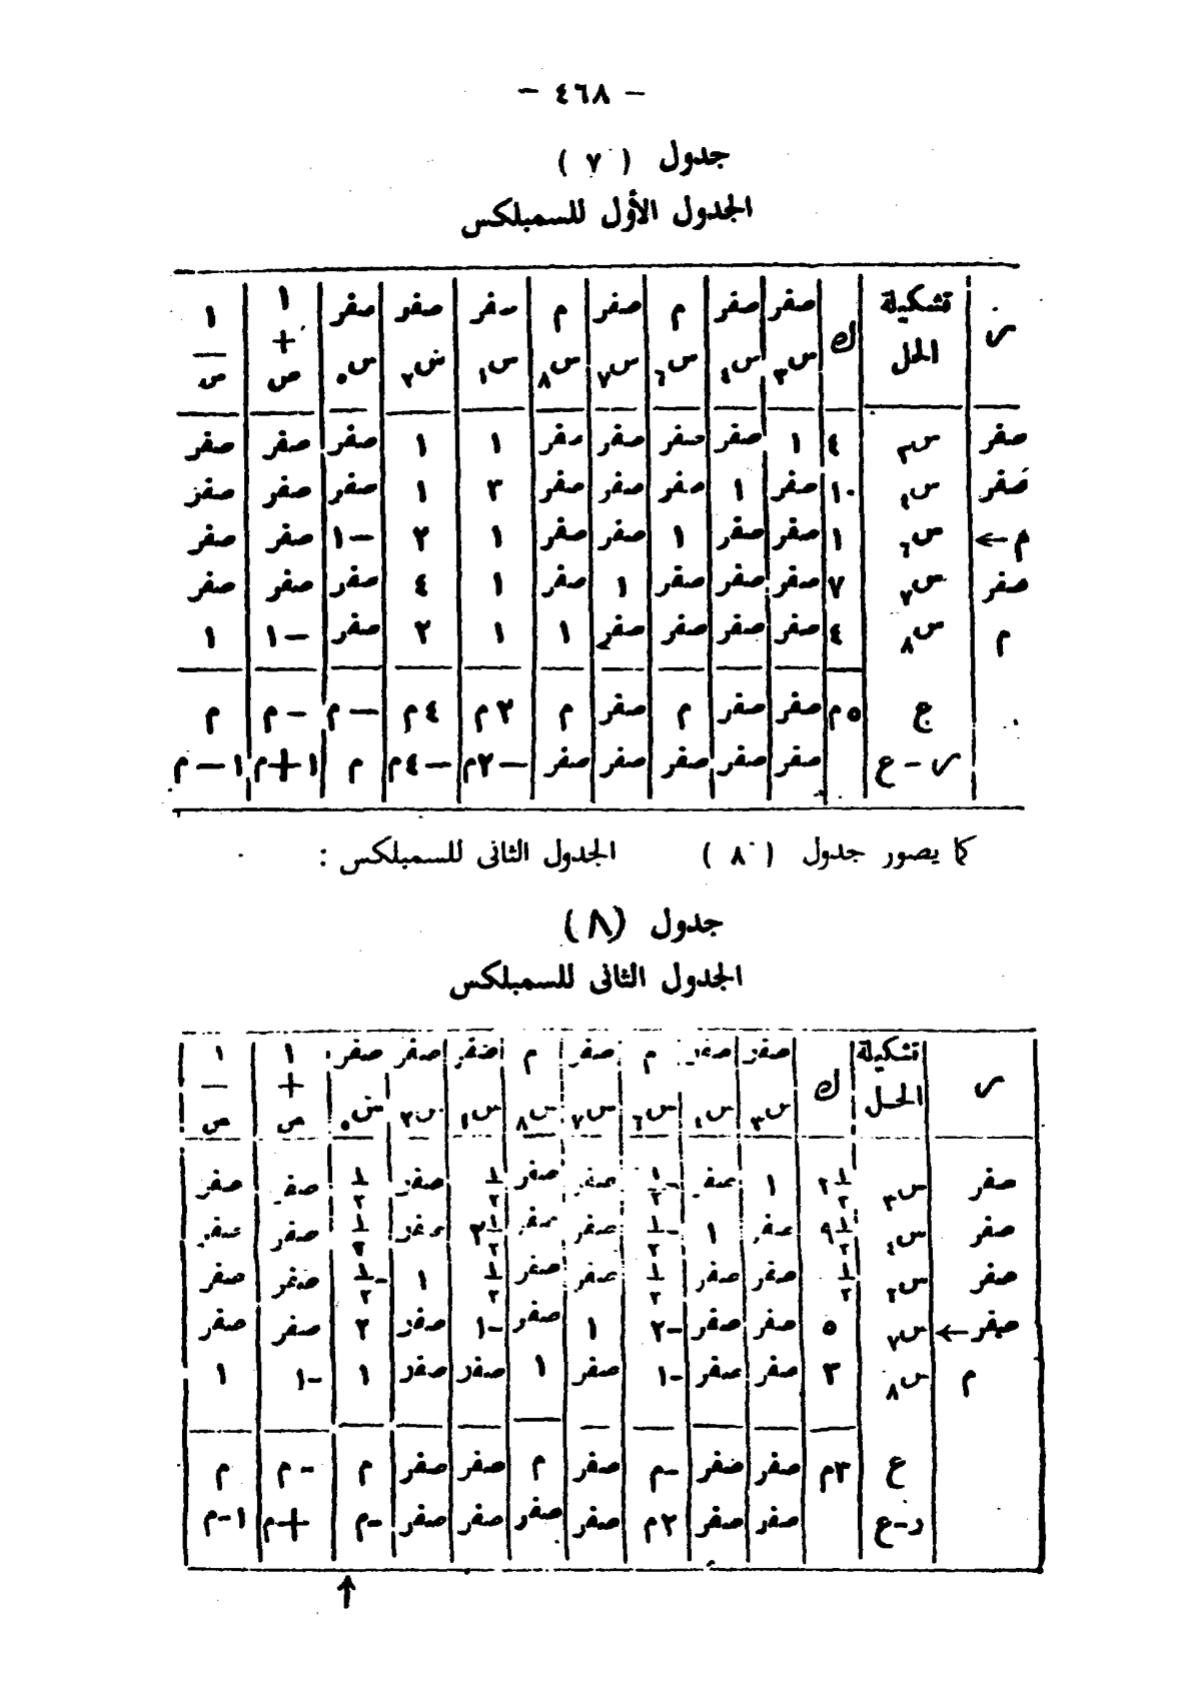 - ٤٦٨ -
جدول ( ٧ )
الجدول الأول للسمبلكس
ر تشكيلة الحل ك صفر صفر م صفر م صفر صفر صفر ١ ١
س٣ س٤ س٦ س٧ س٨ س١ س٢ س٥ +ص —ص
صفر س٣ ٤ ١ صفر صفر صفر صفر ١ ١ صفر صفر صفر
صفر س٤ ١٠ صفر ١ صفر صفر صفر ٣ ١ صفر صفر صفر
م← س٦ ١ صفر صفر ١ صفر صفر ١ ٢ —١ صفر صفر
صفر س٧ ٧ صفر صفر صفر ١ صفر ١ ٤ صفر صفر صفر
م س٨ ٤ صفر صفر صفر صفر ١ ١ ٢ صفر —١ ١
ع ٥م صفر صفر م صفر م ٢م ٤م —م —م م
ر - ع صفر صفر صفر صفر صفر —٢م —٤م م ١+م ١—م
كما يصور جدول ( ٨ ) الجدول الثانى للسمبلكس :
جدول (٨)
الجدول الثانى للسمبلكس
ر تشكيلة الحل ك صفر صفر م صفر م صفر صفر صفر ١ ١
س٣ س٤ س٦ س٧ س٨ س١ س٢ س٥ +ص —ص
صفر س٣ ٣ ١/٢ ١ صفر -١/٢ صفر صفر ١/٢ صفر ١/٢ صفر صفر
صفر س٤ ٩ ١/٢ صفر ١ -١/٢ صفر صفر ٢ ١/٢ صفر ١/٢ صفر صفر
صفر س٢ ١/٢ صفر صفر ١/٢ صفر صفر ١/٢ ١ -١/٢ صفر صفر
صفر← س٧ ٥ صفر صفر -٢ ١ صفر -١ صفر ٢ صفر صفر
م س٨ ٣ صفر صفر -١ صفر ١ صفر صفر ١ -١ ١
ع ٣م صفر صفر -م صفر م صفر صفر م -م م
ر-ع صفر صفر ٢م صفر صفر صفر صفر -م +م ١-م
↑